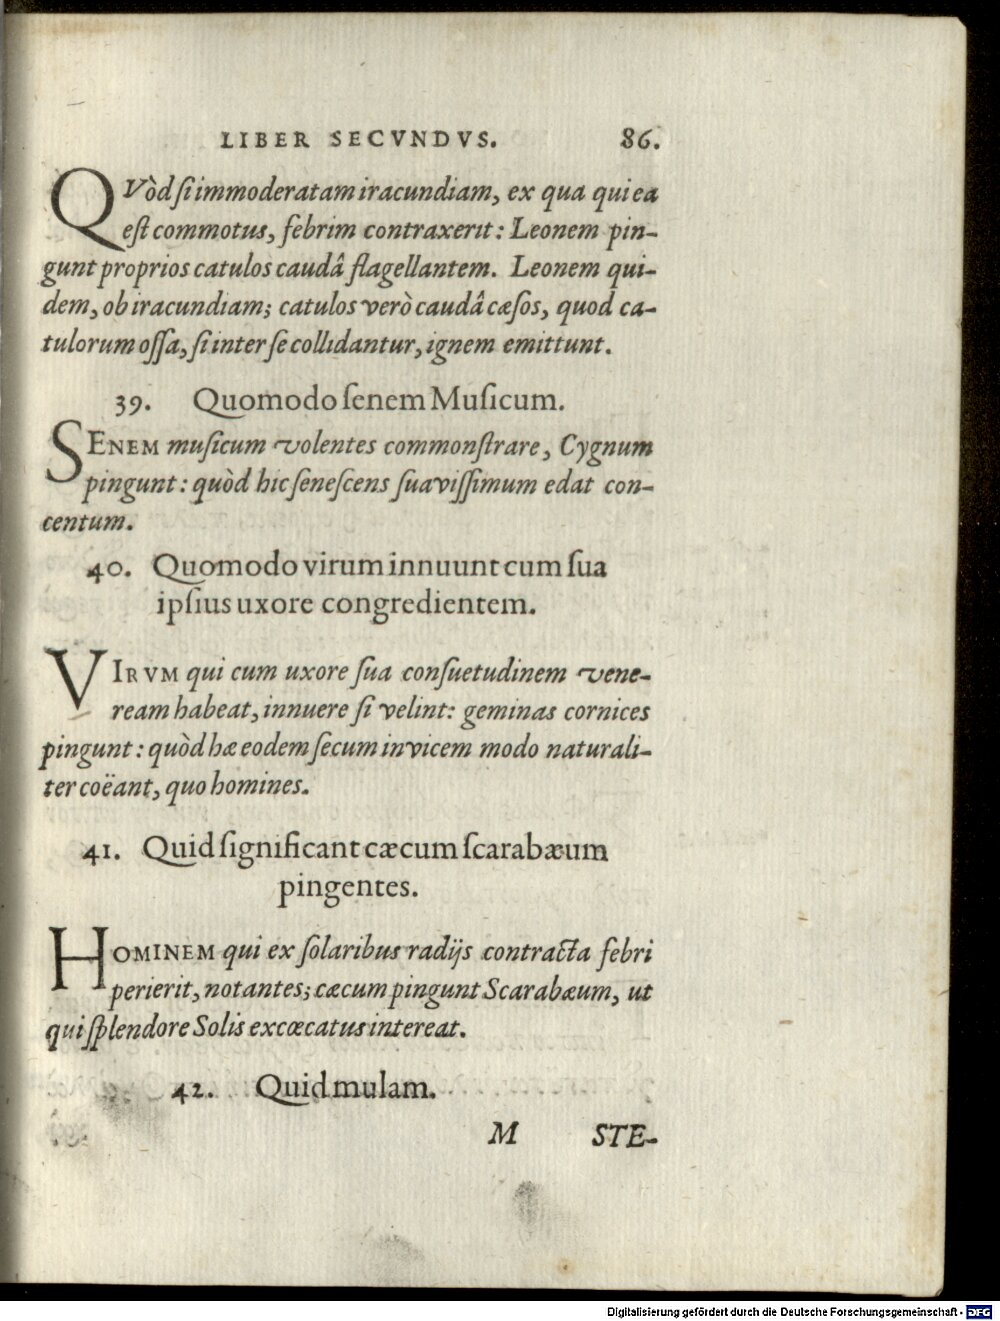 LIBER SECVNDVS. 86.
QVòd ſi immoderatam iracundiam, ex qua qui ea
eſt commotus, febrim contraxerit: Leonem pin-
gunt proprios catulos caudâ flagellantem. Leonem qui-
dem, ob iracundiam; catulos verò caudâ cæſos, quod ca-
tulorum oſſa, ſi inter ſe collidantur, ignem emittunt.
39. Quomodo ſenem Muſicum.
SENEM muſicum volentes commonſtrare, Cygnum
pingunt: quòd hic ſeneſcens ſuaviſſimum edat con-
centum.
40. Quomodo virum innuunt cum ſua
ipſius uxore congredientem.
VIRVM qui cum uxore ſua conſuetudinem vene-
ream habeat, innuere ſi velint: geminas cornices
pingunt: quòd hæ eodem ſecum invicem modo naturali-
ter coëant, quo homines.
41. Quid ſignificant cæcum ſcarabæum
pingentes.
HOMINEM qui ex ſolaribus radijs contracta febri
perierit, notantes; cæcum pingunt Scarabæum, ut
qui ſplendore Solis excœcatus intereat.
42. Quid mulam.
M STE-
Digitalisierung gefördert durch die Deutsche Forschungsgemeinschaft - DFG